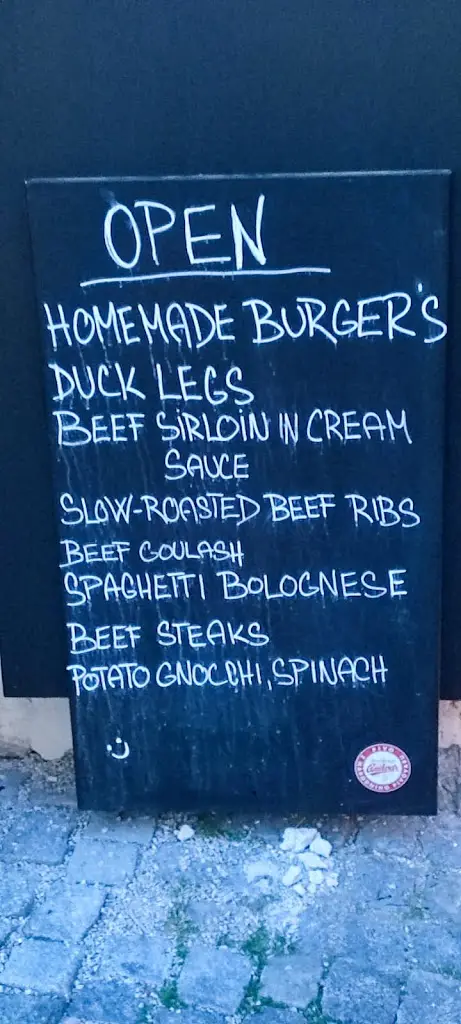 OPEN
HOMEMADE BURGER'S
DUCK LEGS
BEEF SIRLOIN IN CREAM
SAUCE
SLOW-ROASTED BEEF RIBS
BEEF GOULASH
SPAGHETTI BOLOGNESE
BEEF STEAKS
POTATO GNOCCHI, SPINACH
:)